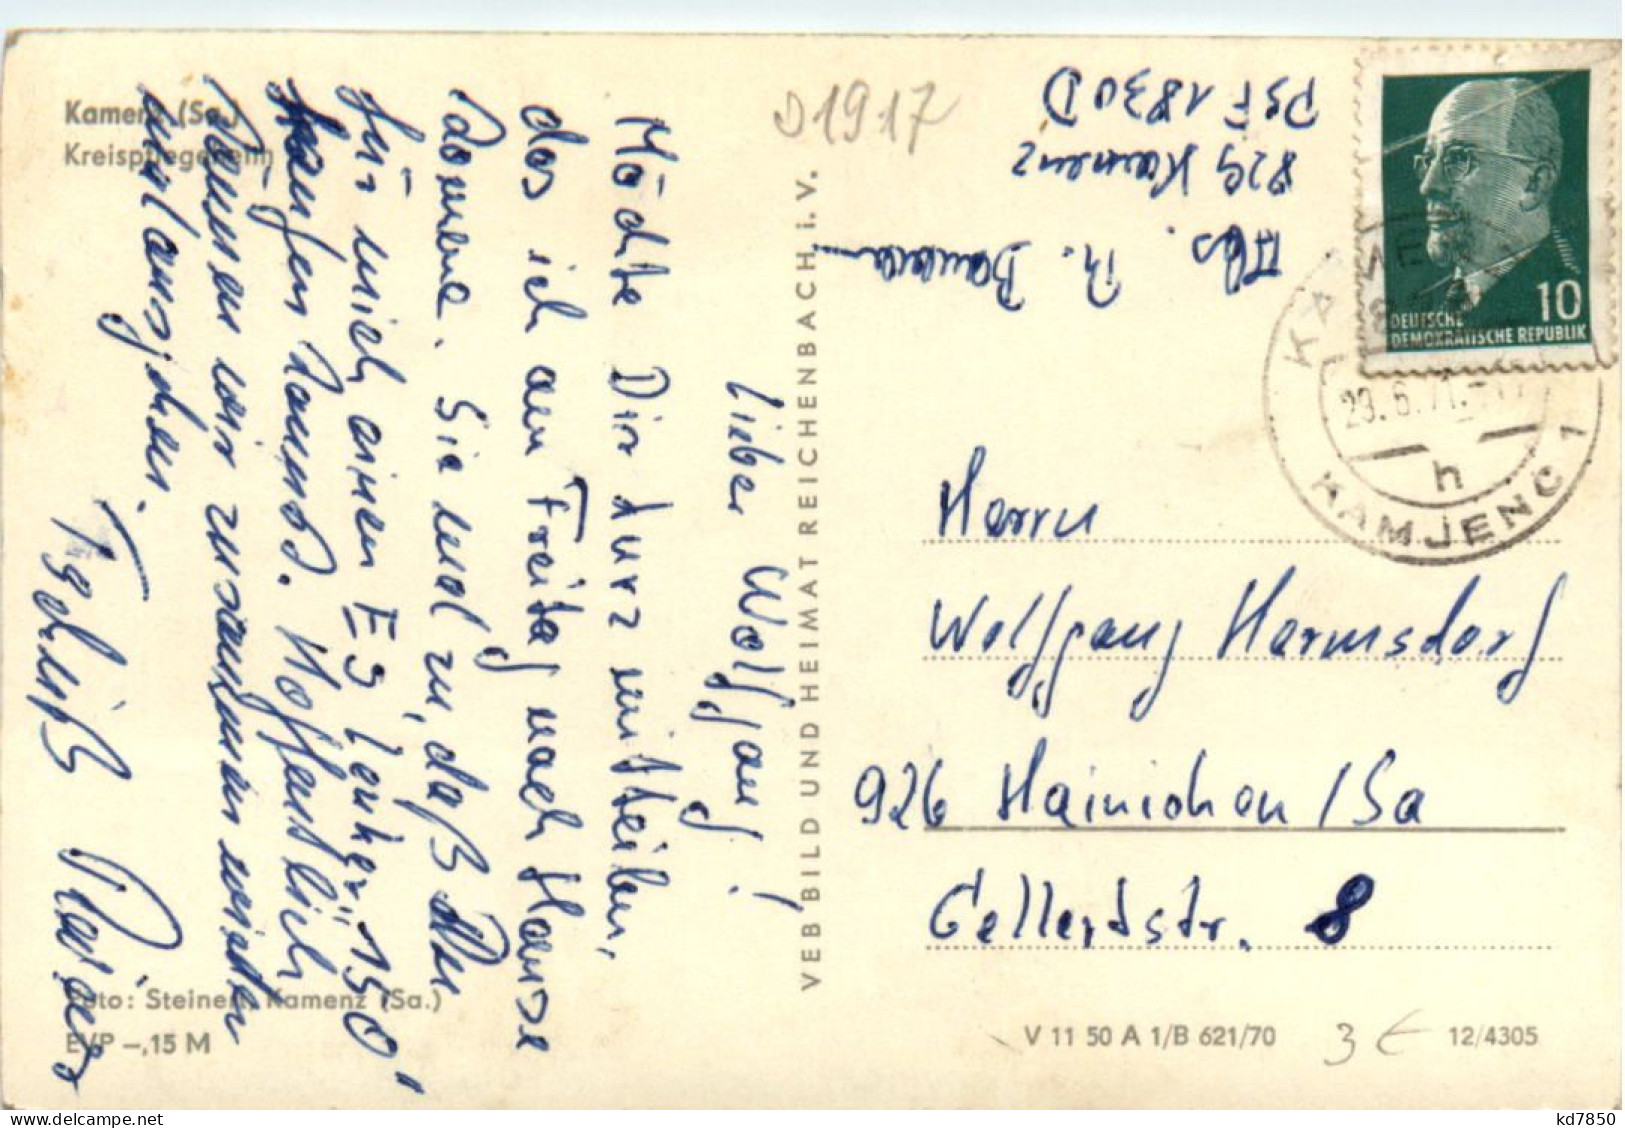 Kamenz (Sa.)
Kreispflegeheim
Lieber Wolfgang!
Möchte Dir kurz mitteilen,
das ich am Freitag nach Hause
komme. Sie und zu, daß Du
für mich einen ES Lenker 150
kaufen kannst. Hoffentlich
können wir zusammen wieder
mal ausgehen.
Tschüß Rainer
Foto: Steinert, Kamenz (Sa.)
EVP –,15 M
VEB BILD UND HEIMAT REICHENBACH i. V.
D1917
Abs. R.
829 Kamenz
PSF 1830 D
10
DEUTSCHE
DEMOKRATISCHE REPUBLIK
KAMENZ
23.6.71.-17
h
KAMJENC 1
Herrn
Wolfgang Harmsdorf
926 Hainichen /Sa
Gellertstr. 8
V 11 50 A 1/B 621/70
3 €
12/4305
kd7850